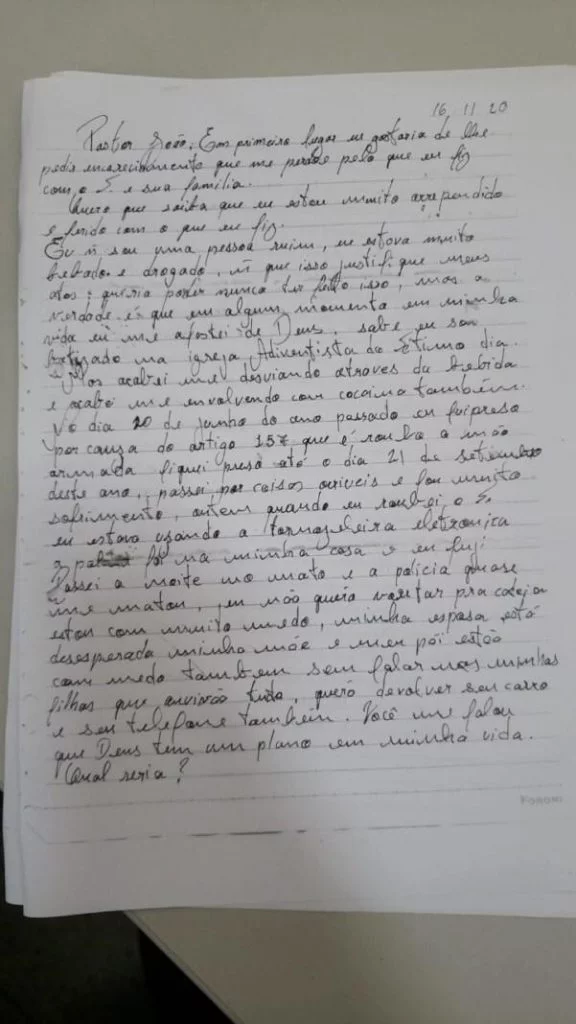 16 11 20
Pastor João, Em primeiro lugar eu gostaria de lhe
pedir encarecidamente que me perdoe pelo que eu fiz
com o S. e sua família.
Quero que saiba que eu estou muito arrependido
e ferido com o que eu fiz.
Eu ñ sou uma pessoa ruim, eu estava muito
bebado e drogado, ñ que isso justifique meus
atos; queria poder nunca ter feito isso, mas a
verdade é que em algum momento em minha
vida eu me afastei de Deus, sabe eu sou
batizado na igreja Adventista do Sétimo dia.
Mas acabei me desviando atraves da bebida
e acabei me envolvendo com cocaina também.
No dia 20 de junho do ano passado eu fui preso
por causa do artigo 157 que é roubo a mão
armada fiquei preso até o dia 21 de setembro
deste ano, passei por coisas oriveis e foi muito
sofrimento, ontem quando eu roubei o S.
eu estava usando a tornozeleira eletronica
a foi na minha casa e eu fugi
Passei a noite no mato e a policia quase
me matou, eu não queria voltar pra cadeia
estou com muito medo, minha esposa está
desesperada minha mãe e meu pai estão
com medo tambem sem falar nas minhas
filhas que ouvirão tudo, quero devolver seu carro
e seu telefone também. Você me falou
que Deus tem um plano em minha vida.
Qual seria?
FORONI